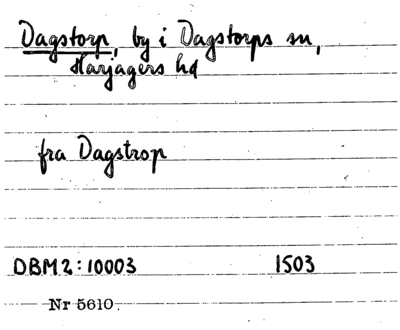 Dagstorp, by i Dagstorps sn,
Harjagers hd
fra Dagstrop
DBM2:10003 1503
Nr 5610